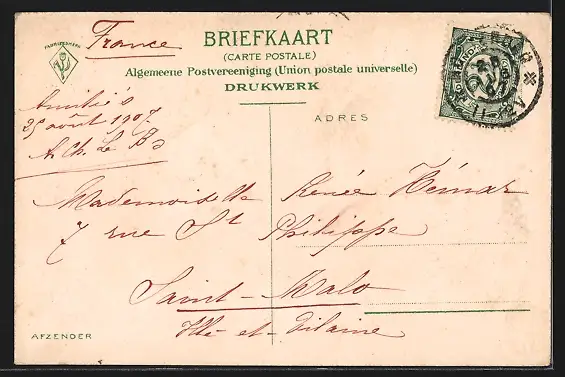 France
BRIEFKAART
(CARTE POSTALE)
Algemeene Postvereeniging (Union postale universelle)
DRUKWERK
ADRES
Amitiés
25 août 1907
A. Ch. Le
Mademoiselle Renée Hémar
7 rue St Philippe
Saint-Malo
Ille-et-Vilaine
AFZENDER